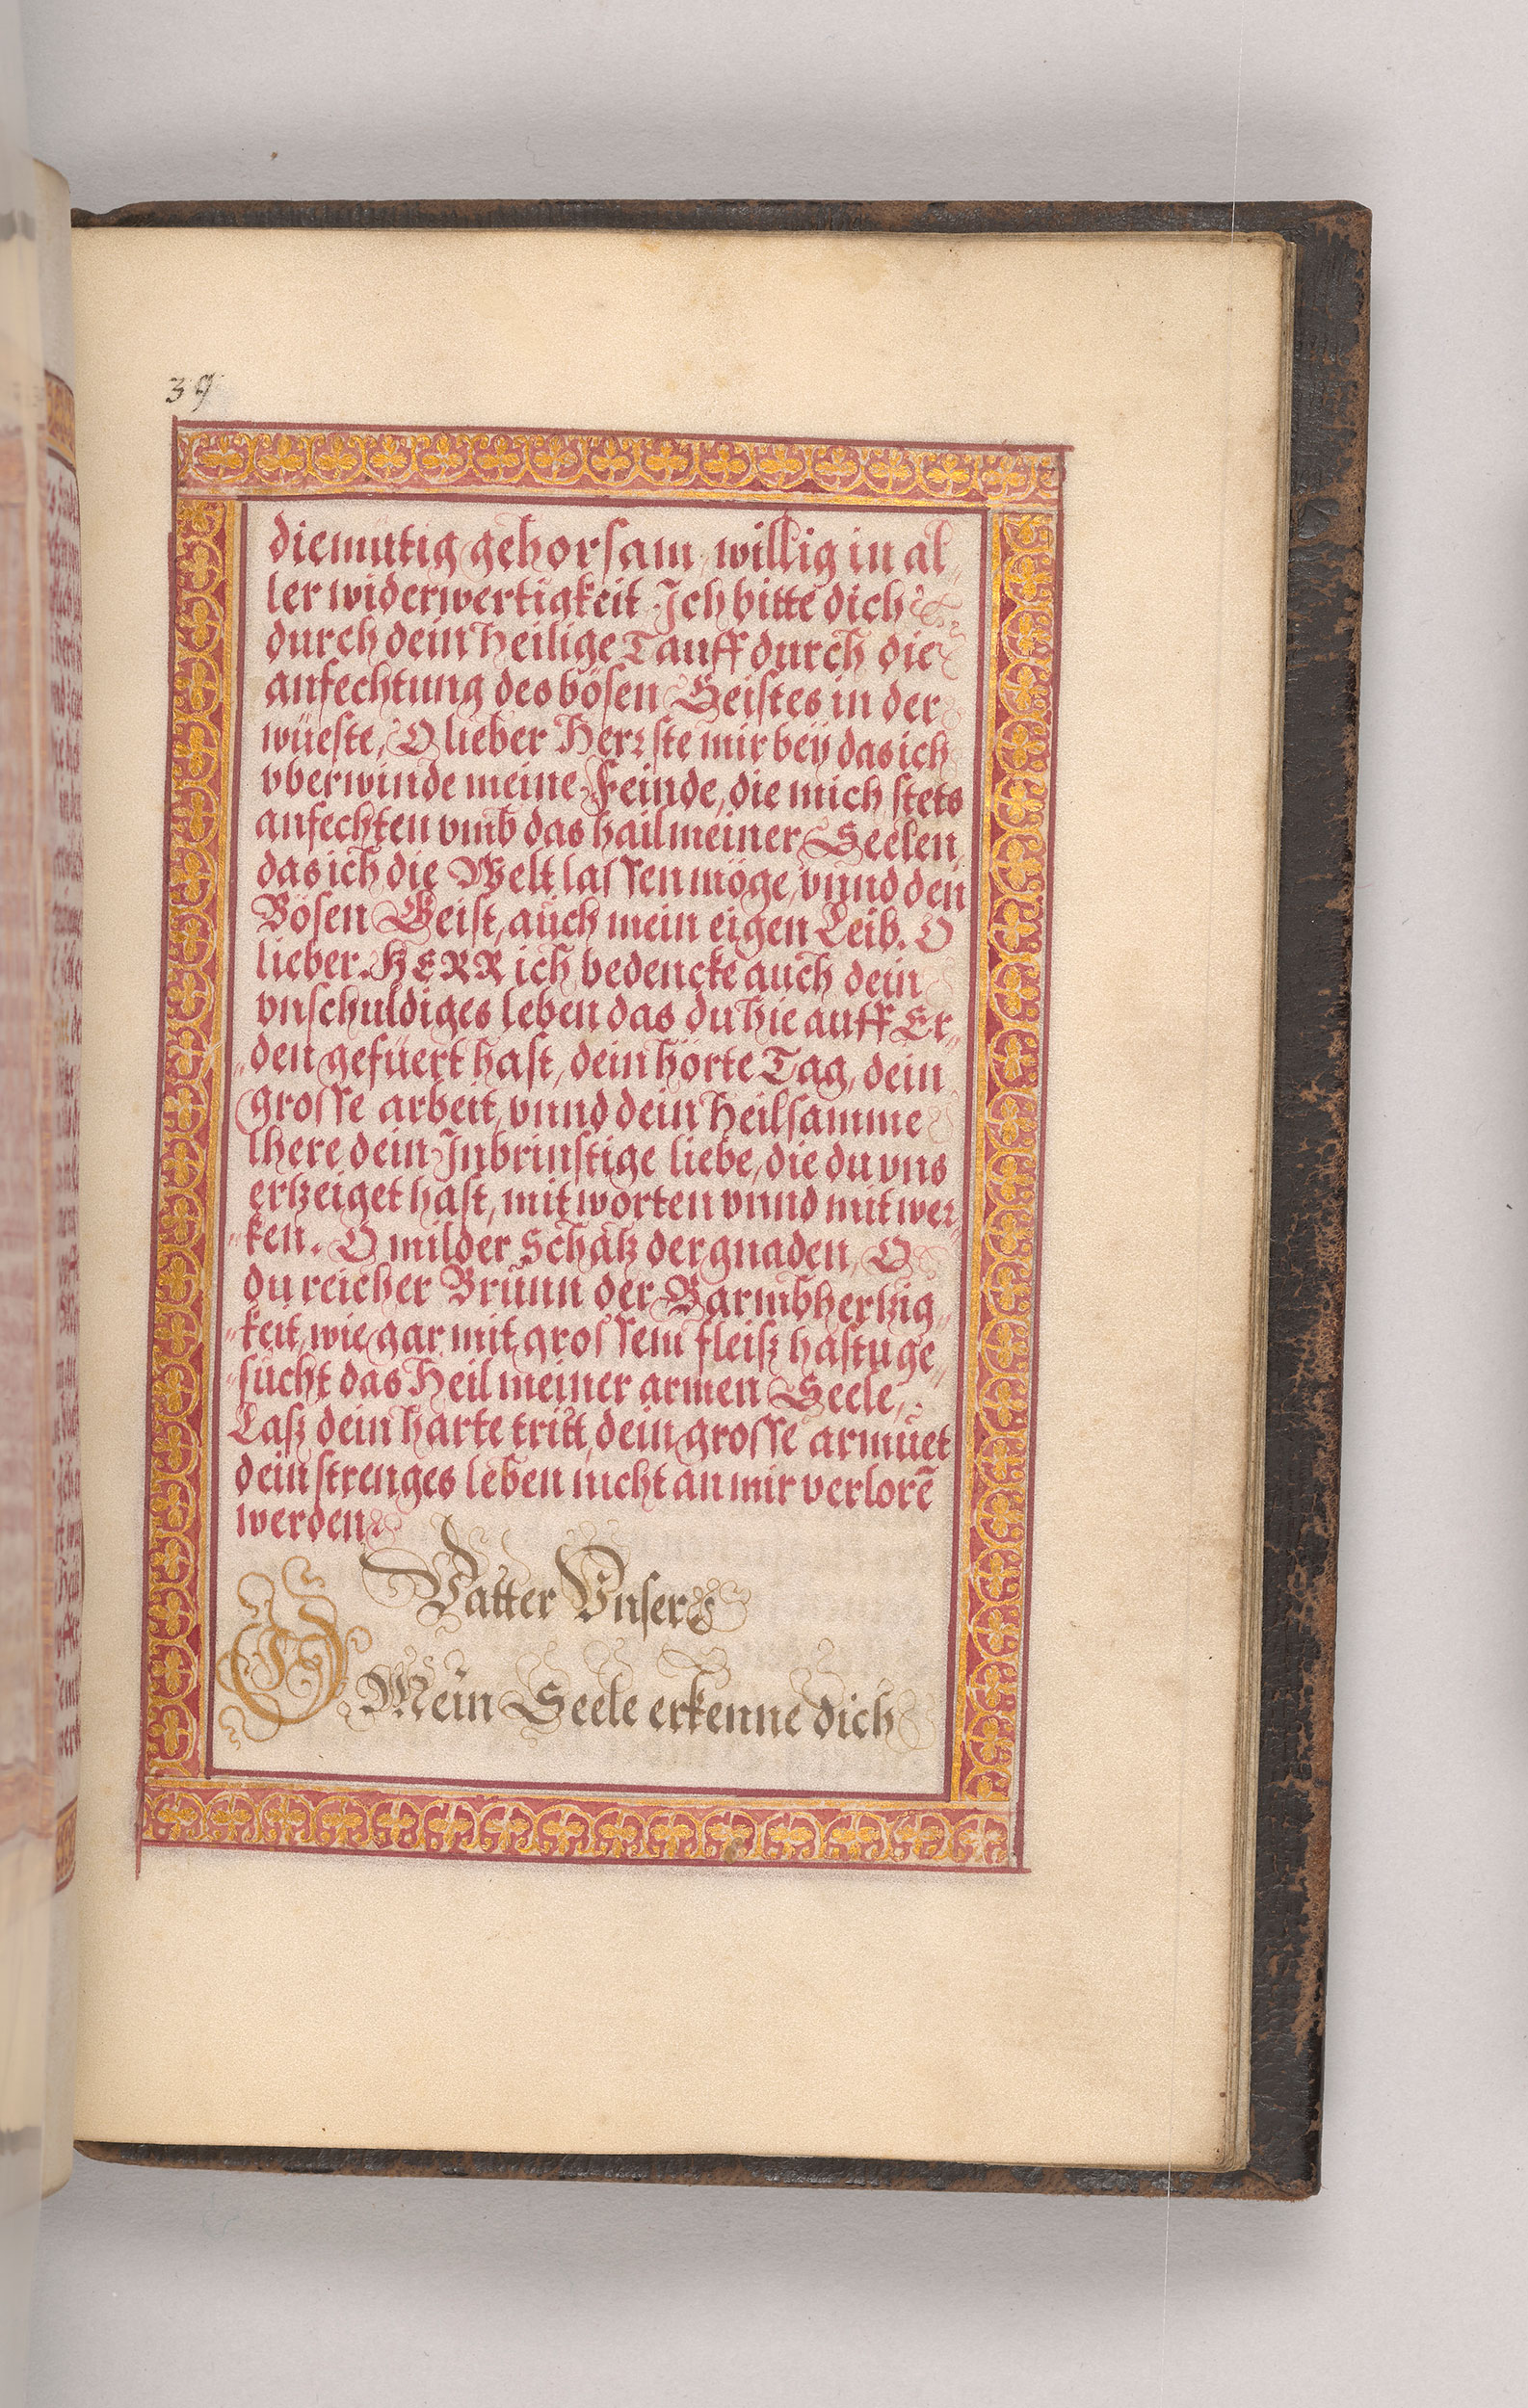 39
diemütig gehorsam, willig in al„
ler widerwertigkeit Ich bitte dich
durch dein heilige Tauff durch die
anfechtung des bösen Geistes in der
wüeste, O lieber Herr ste mir beÿ das ich
vberwinde meine Feinde, die mich stets
anfechten vmb das hail meiner Seelen,
das ich die Welt lassen möge, vnnd den
Bösen Geist, auch mein eigen Leib. O
lieber HERR ich bedencke auch dein
vnschuldiges leben das du hie auff Er„
„den gefüert hast, dein hörte Tag, dein
grosse arbeit, vnnd dein heilsamme
lhere dein Inbrinstige liebe, die du vns
ertzeiget hast, mit worten vnnd mit wer„
„ken. O milder Schatz der gnaden, O
du reicher Brunn der Barmbhertzig„
„keit, wie gar mit grossem fleisz hastu ge„
„sucht das Heil meiner armen Seele,
Lasz dein harte tritt, dein grosse armuet
dein strenges leben nicht an mir verlorẽ
werden
Vatter Vnser
O Mein Seele erkenne dich